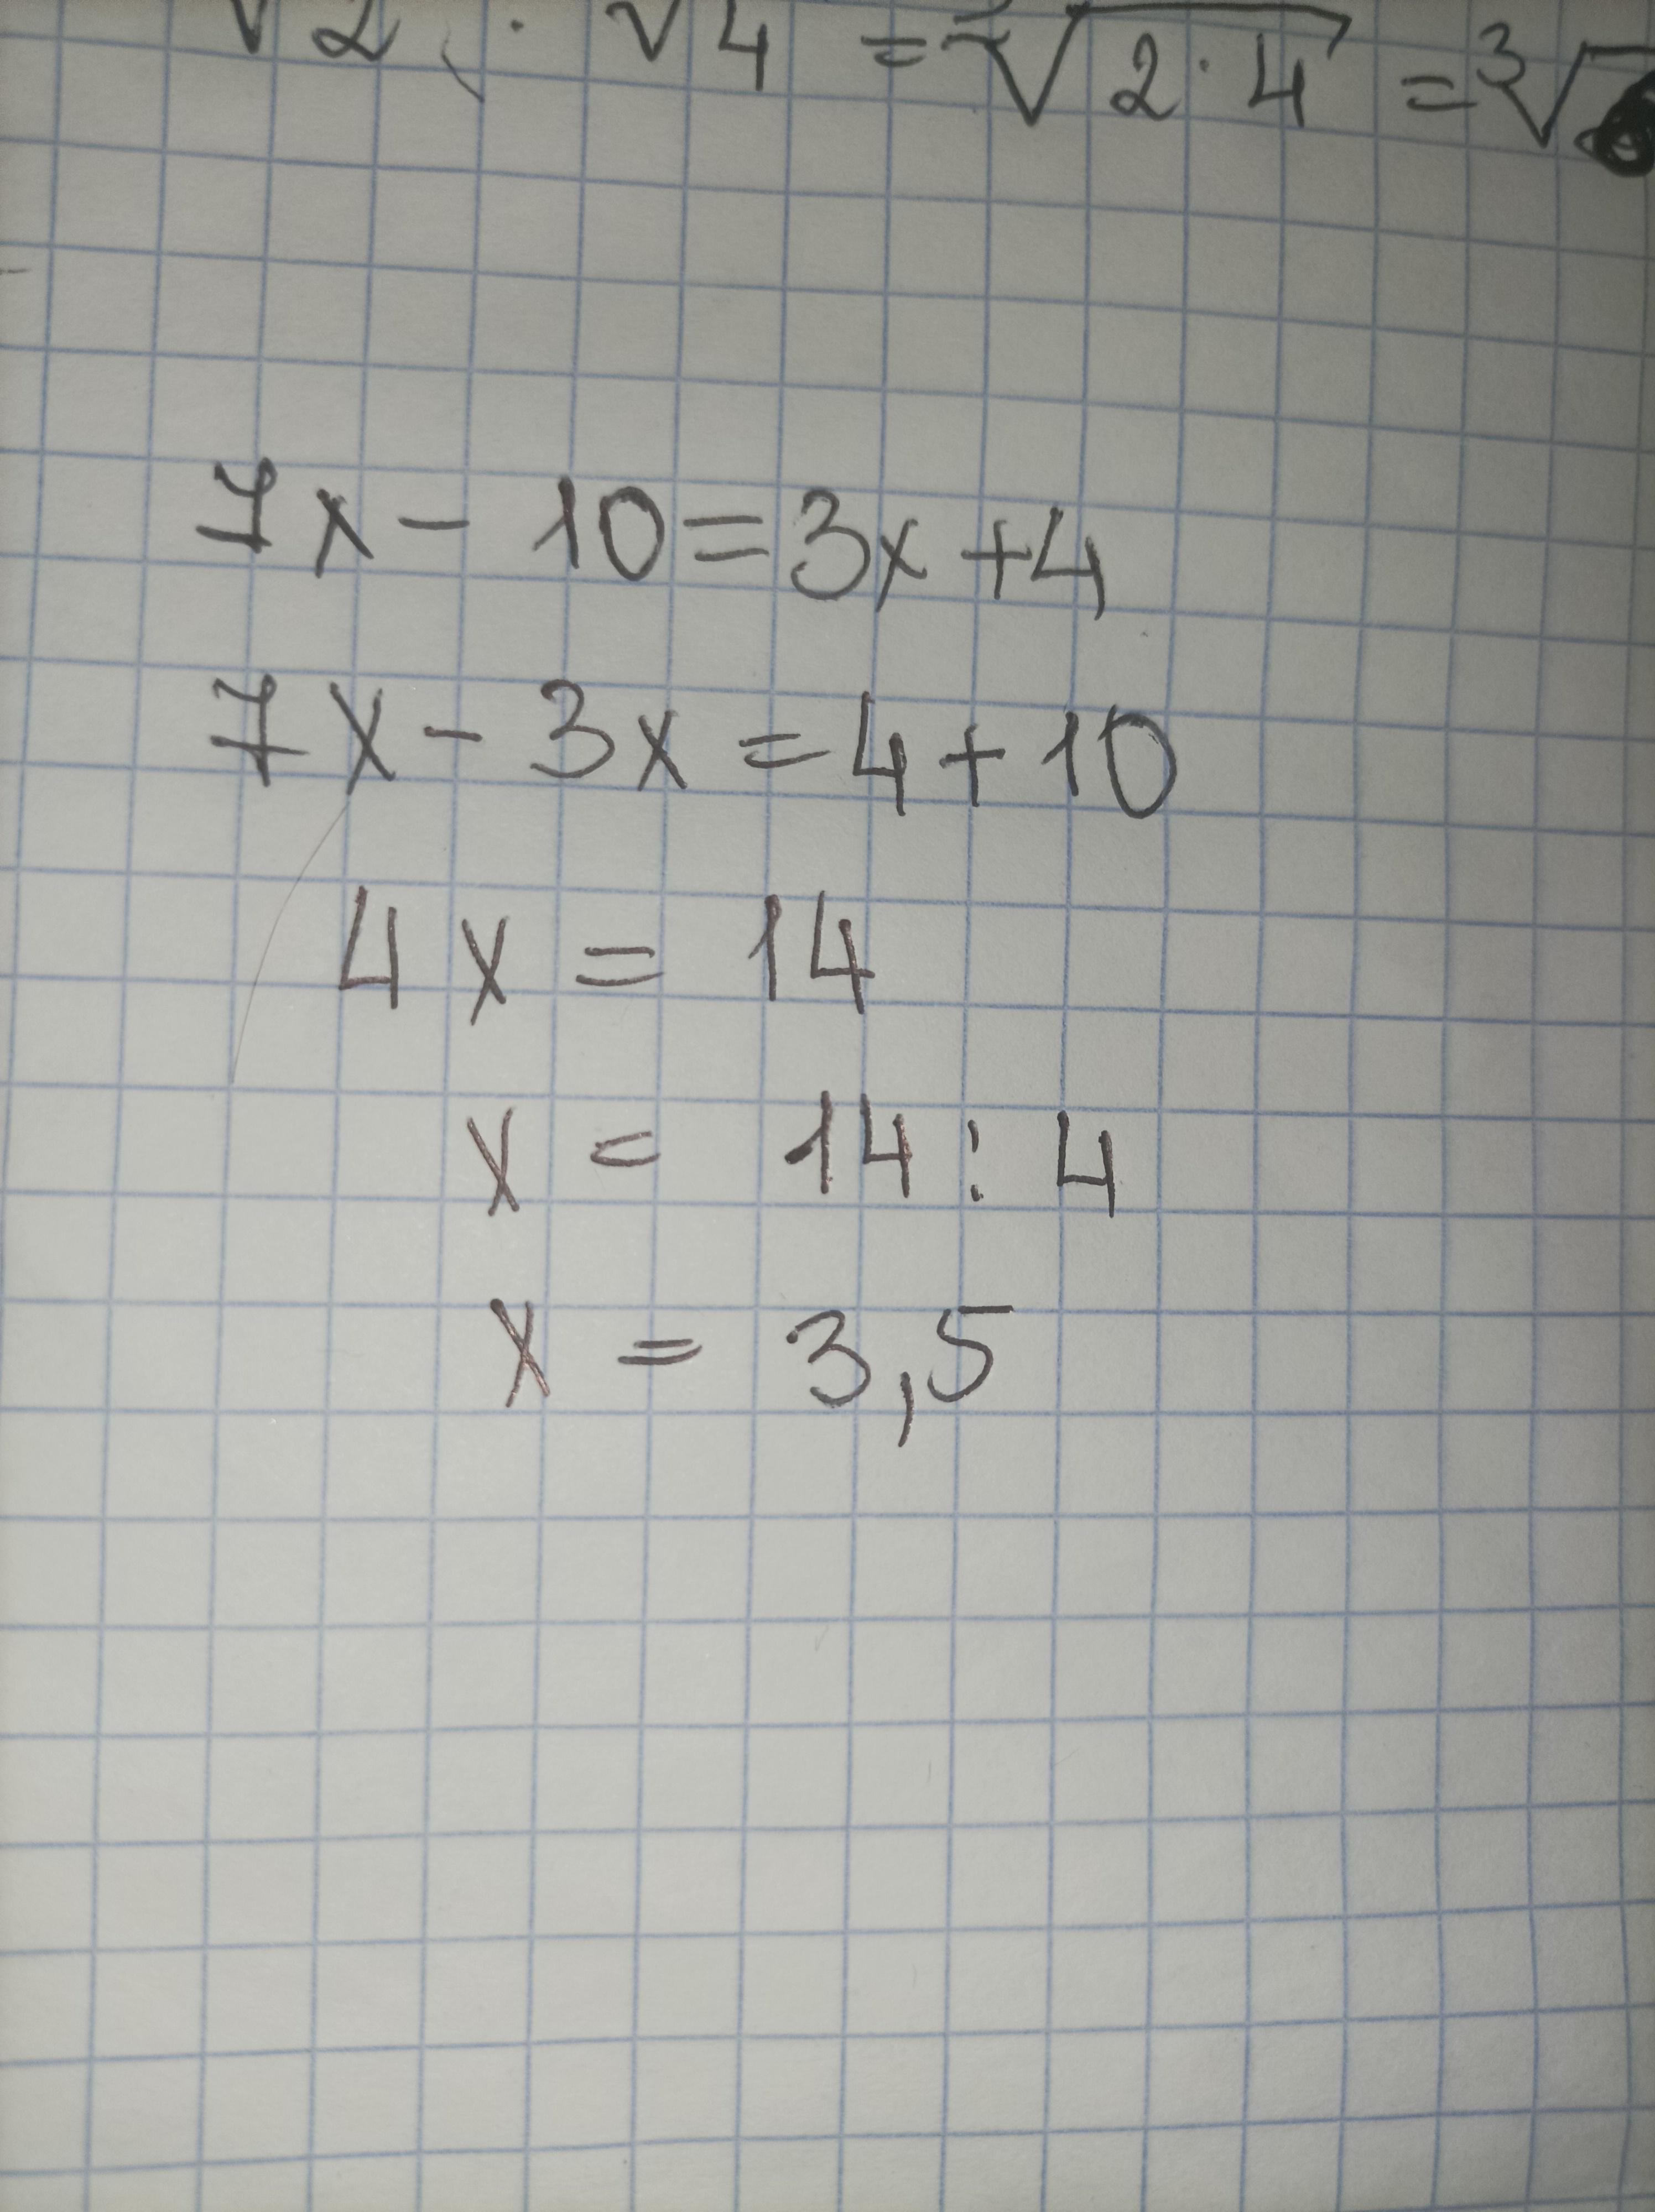 √2 · √4 = ³√2·4 = ³√
7x - 10 = 3x + 4
7x - 3x = 4 + 10
4x = 14
x = 14 : 4
x = 3,5